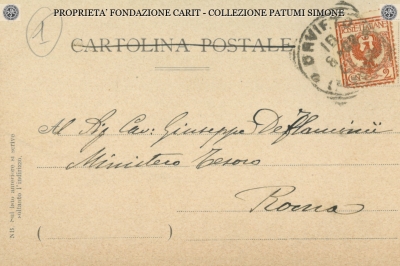 PROPRIETA' FONDAZIONE CARIT - COLLEZIONE PATUMI SIMONE
1
CARTOLINA POSTALE
ORVIE
2
Al Sig Cav: Giuseppe De Flaminii
Ministero Tesoro
Roma
N.B. Sul lato anteriore si scrive
soltanto l'indirizzo.